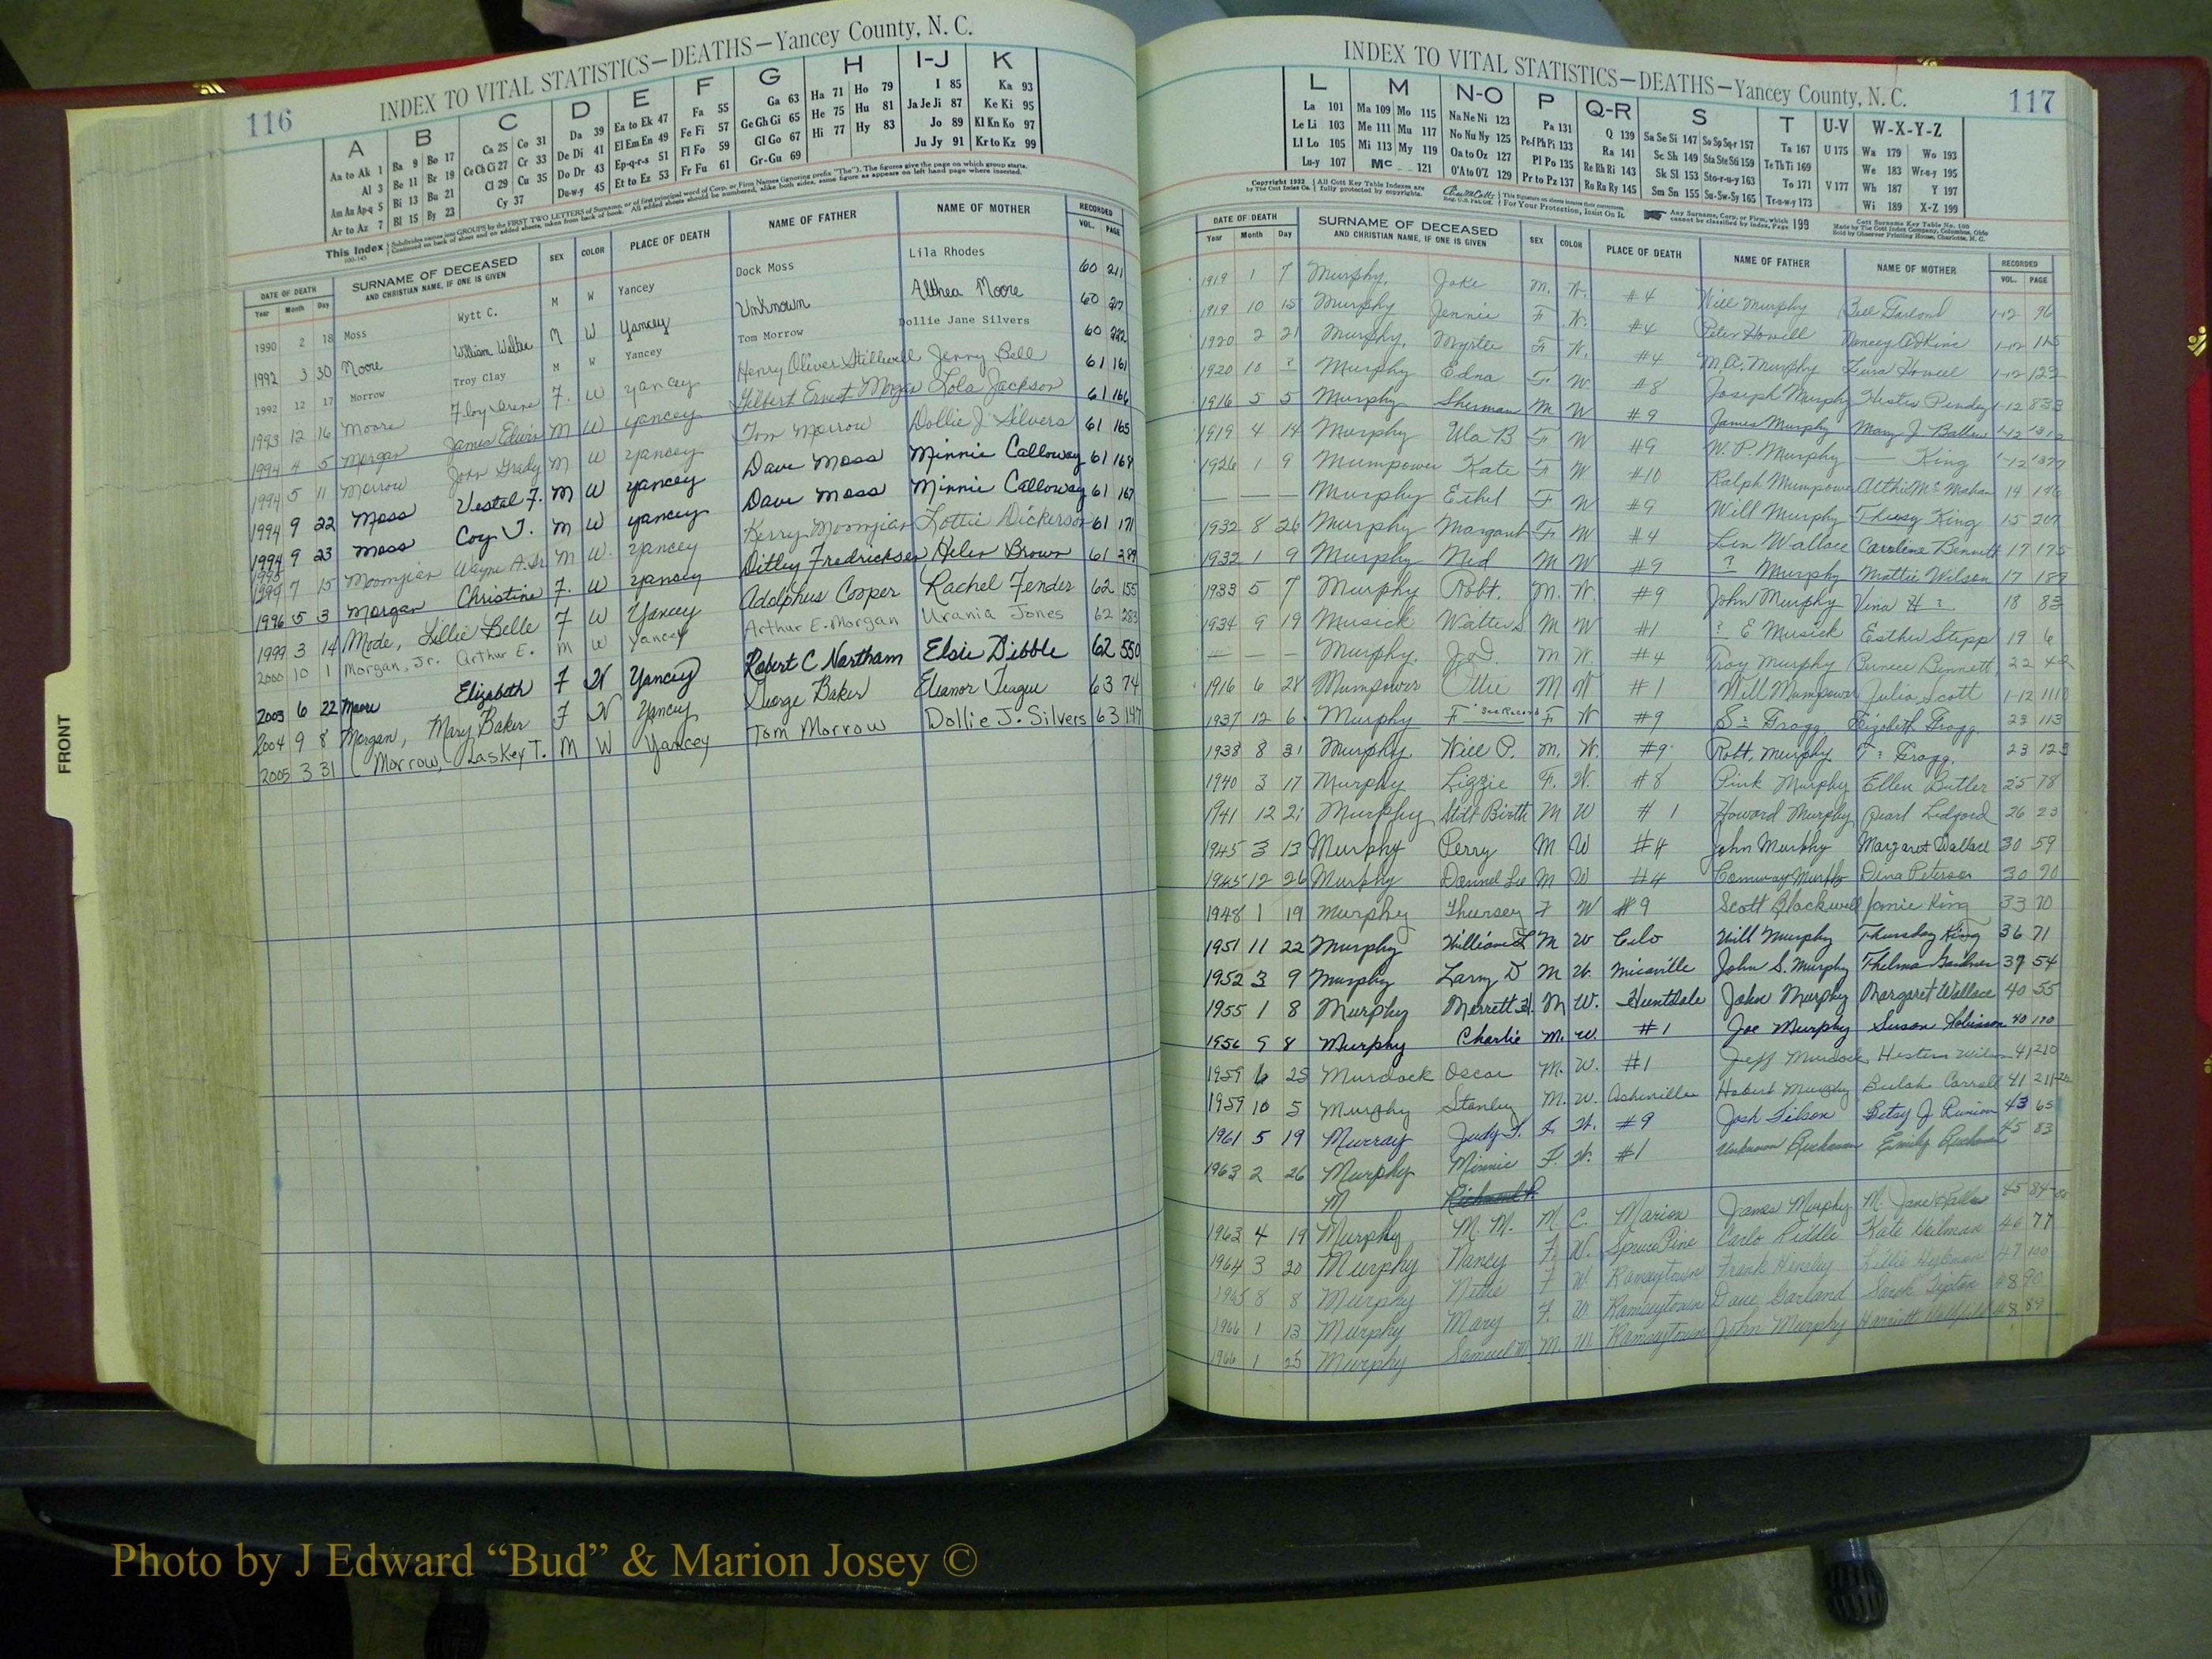 116
INDEX TO VITAL STATISTICS—DEATHS—Yancey County, N. C.
A B C D E F G H I-J K
Aa to Ak 1 Ba 9 Bo 17 Ca 25 Co 31 Da 39 Ea to Ek 47 Fa 55 Ga 63 Ha 71 Ho 79 I 85 Ka 93
Al 3 Be 11 Br 19 Ce Ch Ci 27 Cr 33 De Di 41 El Em En 49 Fe Fi 57 Ge Gh Gi 65 He 75 Hu 81 Ja Je Ji 87 Ke Ki 95
Am An Ap-q 5 Bi 13 Bu 21 Cl 29 Cu 35 Do Dr 43 Ep-q-r-s 51 Fl Fo 59 Gl Go 67 Hi 77 Hy 83 Jo 89 Kl Kn Ko 97
Ar to Az 7 Bl 15 By 23 Cy 37 Du-w-y 45 Et to Ez 53 Fr Fu 61 Gr-Gu 69 Ju Jy 91 Kr to Kz 99
This Index
DATE OF DEATH SURNAME OF DECEASED SEX COLOR PLACE OF DEATH NAME OF FATHER NAME OF MOTHER RECORDED
Year Month Day AND CHRISTIAN NAME, IF ONE IS GIVEN VOL. PAGE
1990 2 18 Moss Wytt C. M W Yancey Dock Moss Lila Rhodes 60 211
1992 3 30 Moore William Walter M W Yancey Unknown Althea Moore 60 217
1992 12 17 Morrow Troy Clay M W Yancey Tom Morrow Dollie Jane Silvers 60 222
1993 12 16 Moore Floy Irene F. W Yancey Henry Oliver Stillwell Jenny Bell 61 161
1994 4 5 Morgan James Edwin M W Yancey Gilbert Ernest Morgan Lola Jackson 61 166
1994 5 11 Morrow John Grady M W Yancey Tom Morrow Dollie J. Silvers 61 165
1994 9 22 Moss Vestal F. M W Yancey Dave Moss Minnie Calloway 61 168
1994 9 23 Moss Coy J. M W Yancey Dave Moss Minnie Calloway 61 167
1995 7 15 Moomjian Wayne A. Sr. M W. Yancey Kerry Moomjian Lottie Dickerson 61 171
1996 5 3 Morgan Christine F. W Yancey Ditley Fredricksen Helen Brown 61 289
1999 3 14 Mode, Lillie Belle F W Yancey Adolphus Cooper Rachel Fender 62 155
2000 10 1 Morgan, Jr. Arthur E. M W Yancey Arthur E. Morgan Urania Jones 62 283
2003 6 22 Moore Elizabeth F W Yancey Robert C Northam Elsie Dibble 62 550
2004 9 8 Morgan, Mary Baker F W Yancey George Baker Eleanor Teague 63 74
2005 3 31 Morrow, Laskey T. M W Yancey Tom Morrow Dollie J. Silvers 63 147
FRONT
INDEX TO VITAL STATISTICS—DEATHS—Yancey County, N. C.
117
L M N-O P Q-R S T U-V W-X-Y-Z
La 101 Ma 109 Mo 115 Na Ne Ni 123 Pa 131 Q 139 Sa Se Si 147 So Sp Sq-r 157 Ta 167 U 175 Wa 179 Wo 193
Le Li 103 Me 111 Mu 117 No Nu Ny 125 Pe-f Ph Pi 133 Ra 141 Sc Sh 149 Sta Ste Sti 159 Te Th Ti 169 We 183 Wr-u-y 195
Ll Lo 105 Mi 113 My 119 Oa to Oz 127 Pl Po 135 Re Rh Ri 143 Sk Sl 153 Sto-r-u-y 163 To 171 V 177 Wh 187 Y 197
Lu-y 107 Mc 121 O'A to O'Z 129 Pr to Pz 137 Ro Ru Ry 145 Sm Sn 155 Su-Sw-Sy 165 Tr-u-w-y 173 Wi 189 X-Z 199
DATE OF DEATH SURNAME OF DECEASED SEX COLOR PLACE OF DEATH NAME OF FATHER NAME OF MOTHER RECORDED
Year Month Day AND CHRISTIAN NAME, IF ONE IS GIVEN VOL. PAGE
1919 1 7 Murphy, Jake M. W. #4 Will Murphy Bell Garland 1-12 96
1919 10 15 Murphy Jennie F W. #4 Peter Howell Nancy Adkins 1-12 115
1920 2 21 Murphy, Myrtle F W. #4 M.A. Murphy Howell 1-12 122
1920 10 ? Murphy Edna F W #8 Joseph Murphy Hester 1-12 833
1916 5 5 Murphy Sherman M W #9 James Murphy Mary J. Ballew 1-12
1919 4 14 Murphy Ula B F W #9 W. P. Murphy — King 1-12
1926 1 9 Mumpower Kate F W #10 Ralph Mumpower McMahan 14 146
— — — Murphy Ethel F W #9 Will Murphy King 15 207
1932 8 26 Murphy Margaret F W #4 Len Wallace Caroline Bennett 17 175
1932 1 9 Murphy Ned M W #9 ? Murphy Mattie Wilson 17 189
1933 5 7 Murphy Robt. M. W. #9 John Murphy Vina H ? 18 83
1934 9 19 Musick Walter S M W #1 ? E Musick Esther Stepp 19 6
— — — Murphy. J.D. M W. #4 Troy Murphy Burnece Bennett 22 42
1916 6 28 Mumpower Ottie M W #1 Will Mumpower Julia Scott 1-12 1113
1937 12 6 Murphy F See Record F W #9 S ? Gragg Elizabeth Gragg. 23 113
1938 8 31 Murphy. Will P. M. W. #9 Robt. Murphy. T ? Gragg. 23 123
1940 3 17 Murphy Lizzie F. W. #8 Pink Murphy Ellen Butler 25 78
1941 12 21 Murphy Still Birth M W #1 Howard Murphy Pearl Ledford 26 23
1945 3 13 Murphy Perry M W #4 John Murphy Margaret Wallace 30 59
1945 12 26 Murphy Donnel Lee M W #4 Conway Murphy Dina Peterson 30 90
1948 1 19 Murphy Thursey F W #9 Scott Blackwell Janie King 33 70
1951 11 22 Murphy William L M W Celo Will Murphy Thursday King 36 71
1952 3 9 Murphy Larry D M W. Micaville John S. Murphy Thelma Gardner 37 54
1955 1 8 Murphy Merrett H. M W. Huntdale John Murphy Margaret Wallace 40 55
1956 9 8 Murphy Charlie M. W. #1 Joe Murphy Susan Robinson 40 170
1959 6 25 Murdock Oscar M. W. #1 Jeff Murdock 41 210
1959 10 5 Murphy Stanley M. W. Asheville Hobert Murphy Beulah Carroll 41 211
1961 5 19 Murray Judy T. F. W. #9 Josh Tilson Betsy J Runion 43 65
1963 2 26 Murphy Minnie F. W. #1 Unknown Buchanan Emily Buchanan 45 83
M Richard R
1963 4 19 Murphy M. M. M C. Marion James Murphy M. Jane 45 84
1964 3 20 Murphy Nancy F. W. Spruce Pine Carlo Riddle Kate 46 77
1965 8 8 Murphy Nettie F W. Ramseytown Frank Hensley Lillie 47 100
1966 1 13 Murphy Mary F. W. Ramseytown Dave Garland Sarah Tipton 48 90
1966 1 25 Murphy Samuel M. M. W. Ramseytown John Murphy Harriett 48 89
Photo by J Edward “Bud” & Marion Josey ©